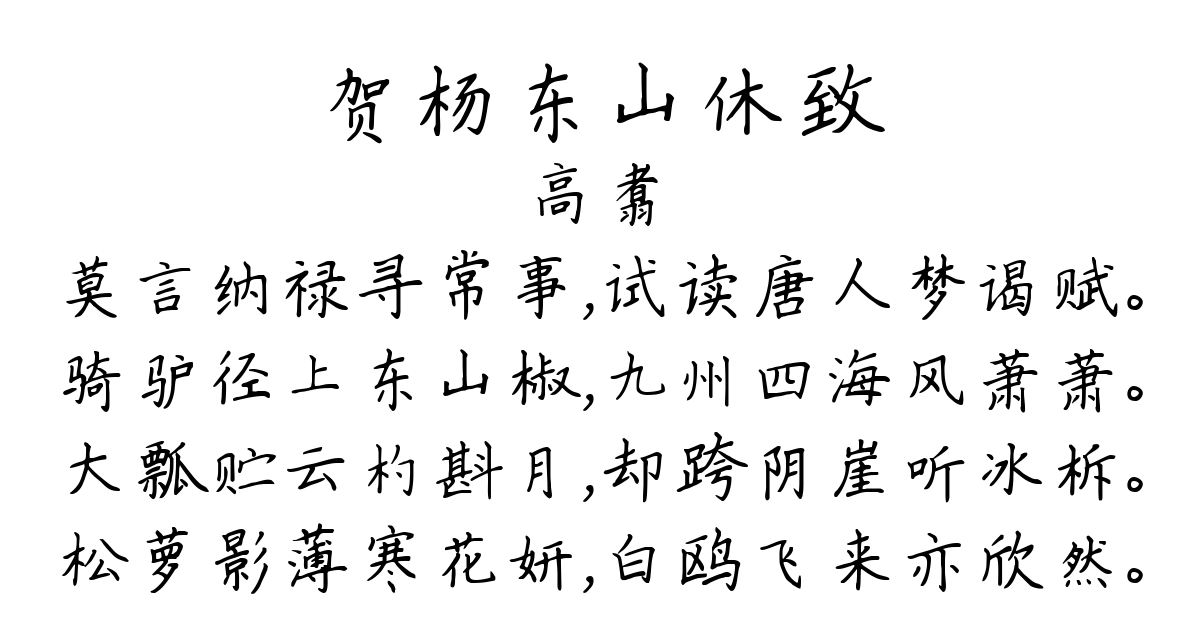 贺杨东山休致
高翥
莫言纳禄寻常事,试读唐人梦谒赋。
骑驴径上东山椒,九州四海风萧萧。
大瓢贮云杓斟月,却跨阴崖听冰柝。
松萝影薄寒花妍,白鸥飞来亦欣然。